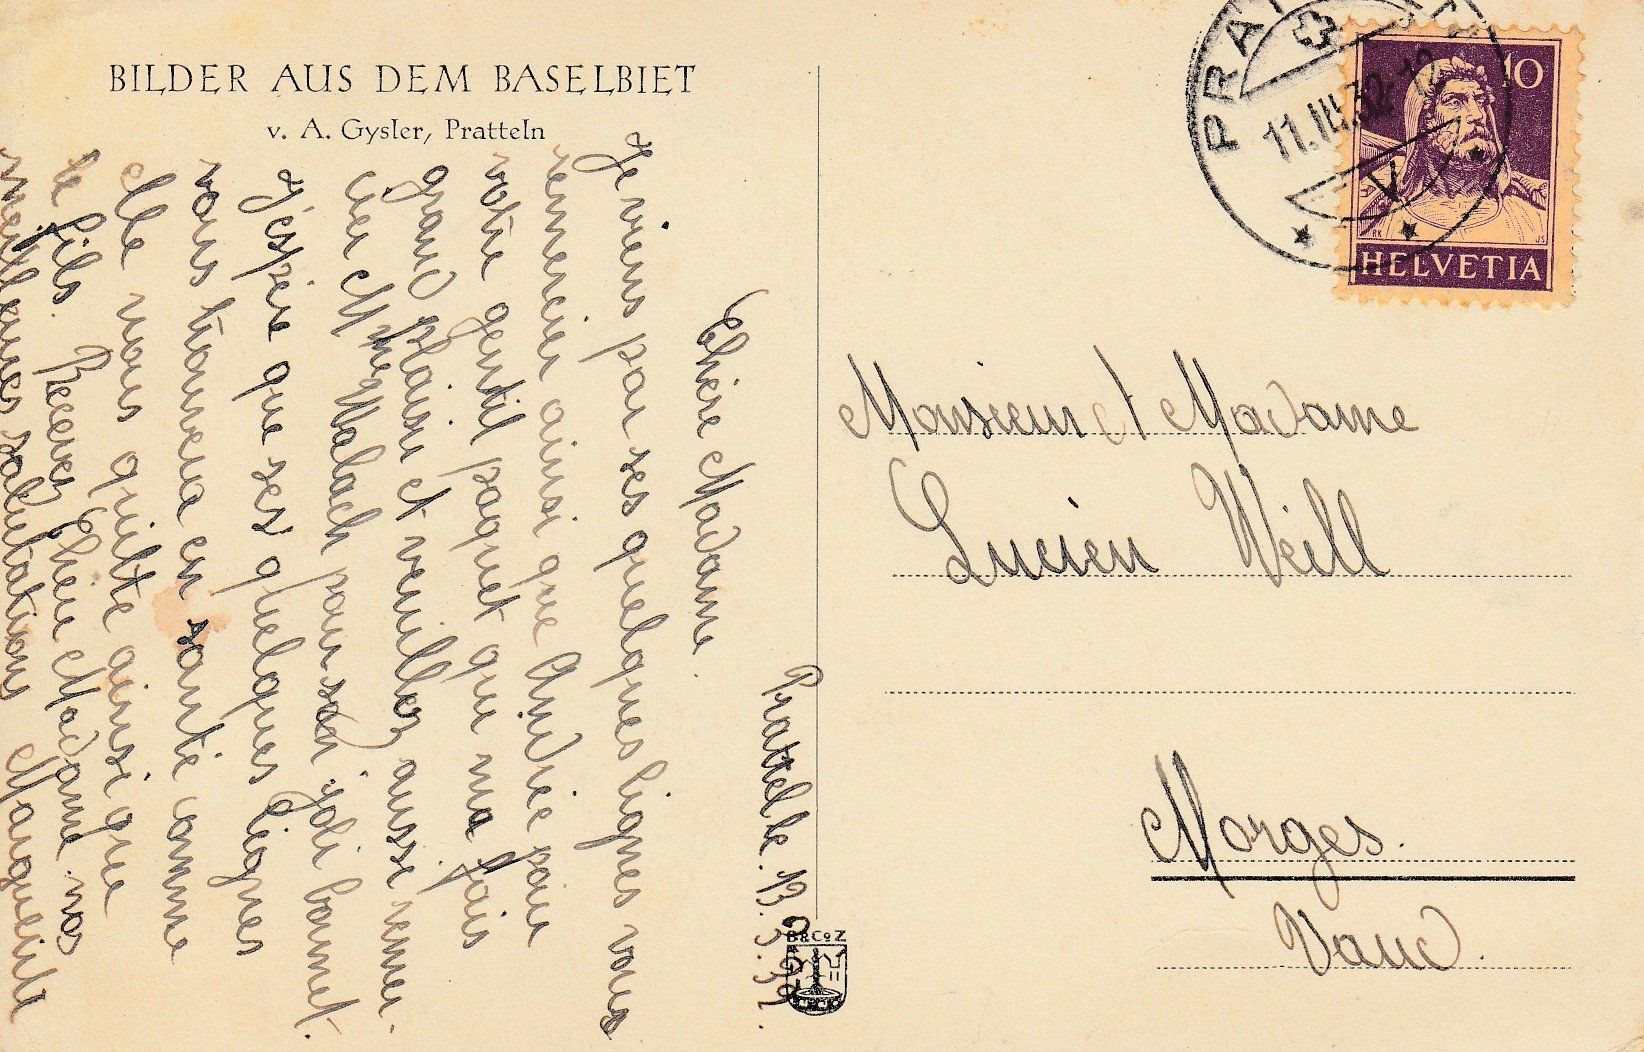 BILDER AUS DEM BASELBIET
v. A. Gysler, Pratteln
Prattelle. 13.3.32.
Chère Madame.
Je viens par ses quelques lignes vous
remercier ainsi que Andrée pour
votre gentil paquet qui ma fais
grand plaisir et veuillez aussi remer-
cier Mme Walach pour son joli bonnet.
J'espère que ses quelques lignes
vous trouvera en santé comme
elle nous quitte ainsi que
le fils. Recevez Chère Madame nos
meilleures salutations Marguerite
PRA
11.III.32-12
V
10
HELVETIA
Monsieur et Madame
Lucien Weill
Morges.
Vaud.
B&Co Z